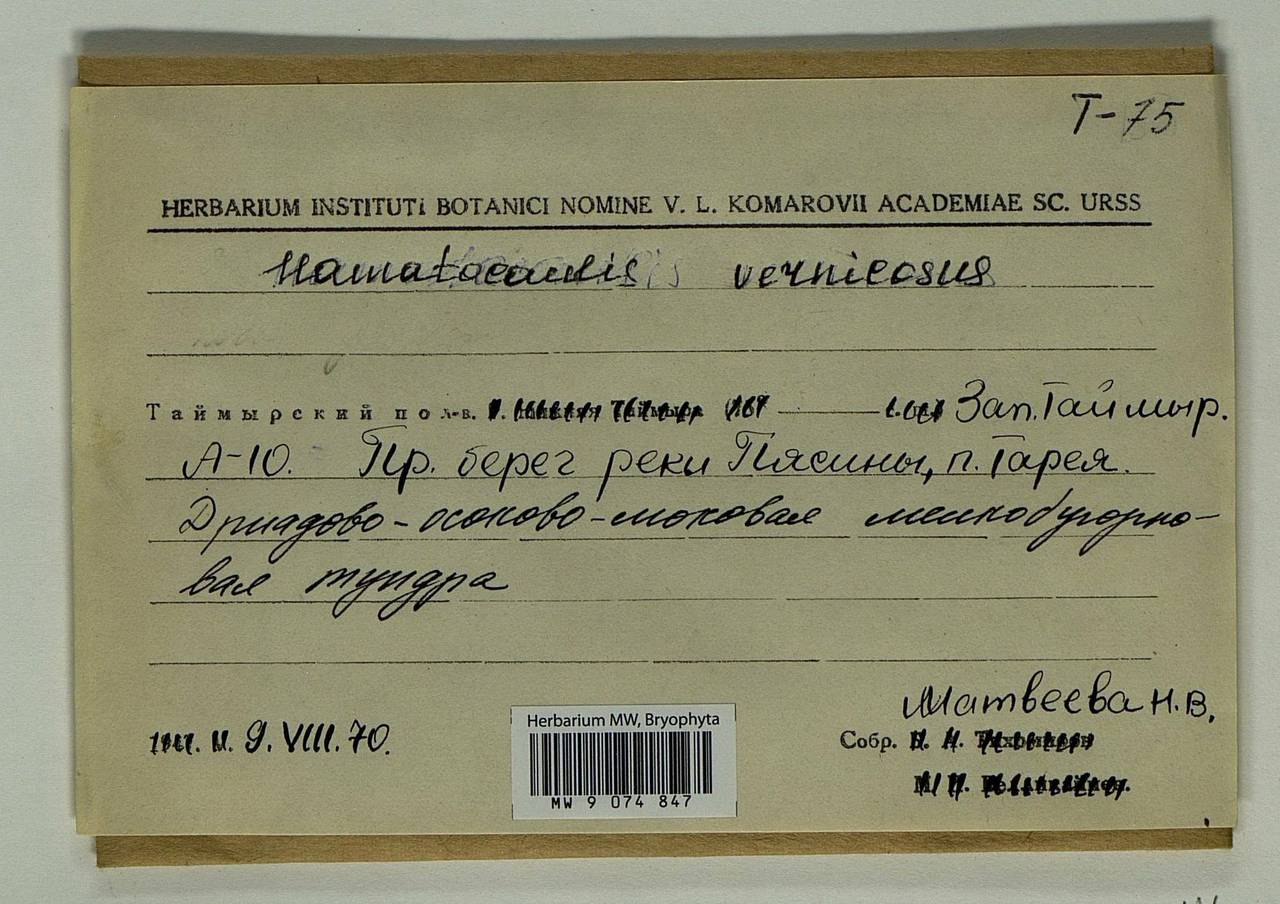 Т-75
HERBARIUM INSTITUTI BOTANICI NOMINE V. L. KOMAROVII ACADEMIAE SC. URSS
Hamatocaulis vernicosus
Таймырский пол-в. Зап. Таймыр.
А-10. Пр. берег реки Пясины, п. Тарея.
Дриадово-осоково-моховая мелкобугорко-
вая тундра
Матвеева Н.В.
9. VIII. 70.
Собр.
Herbarium MW, Bryophyta
MW 9 074 847